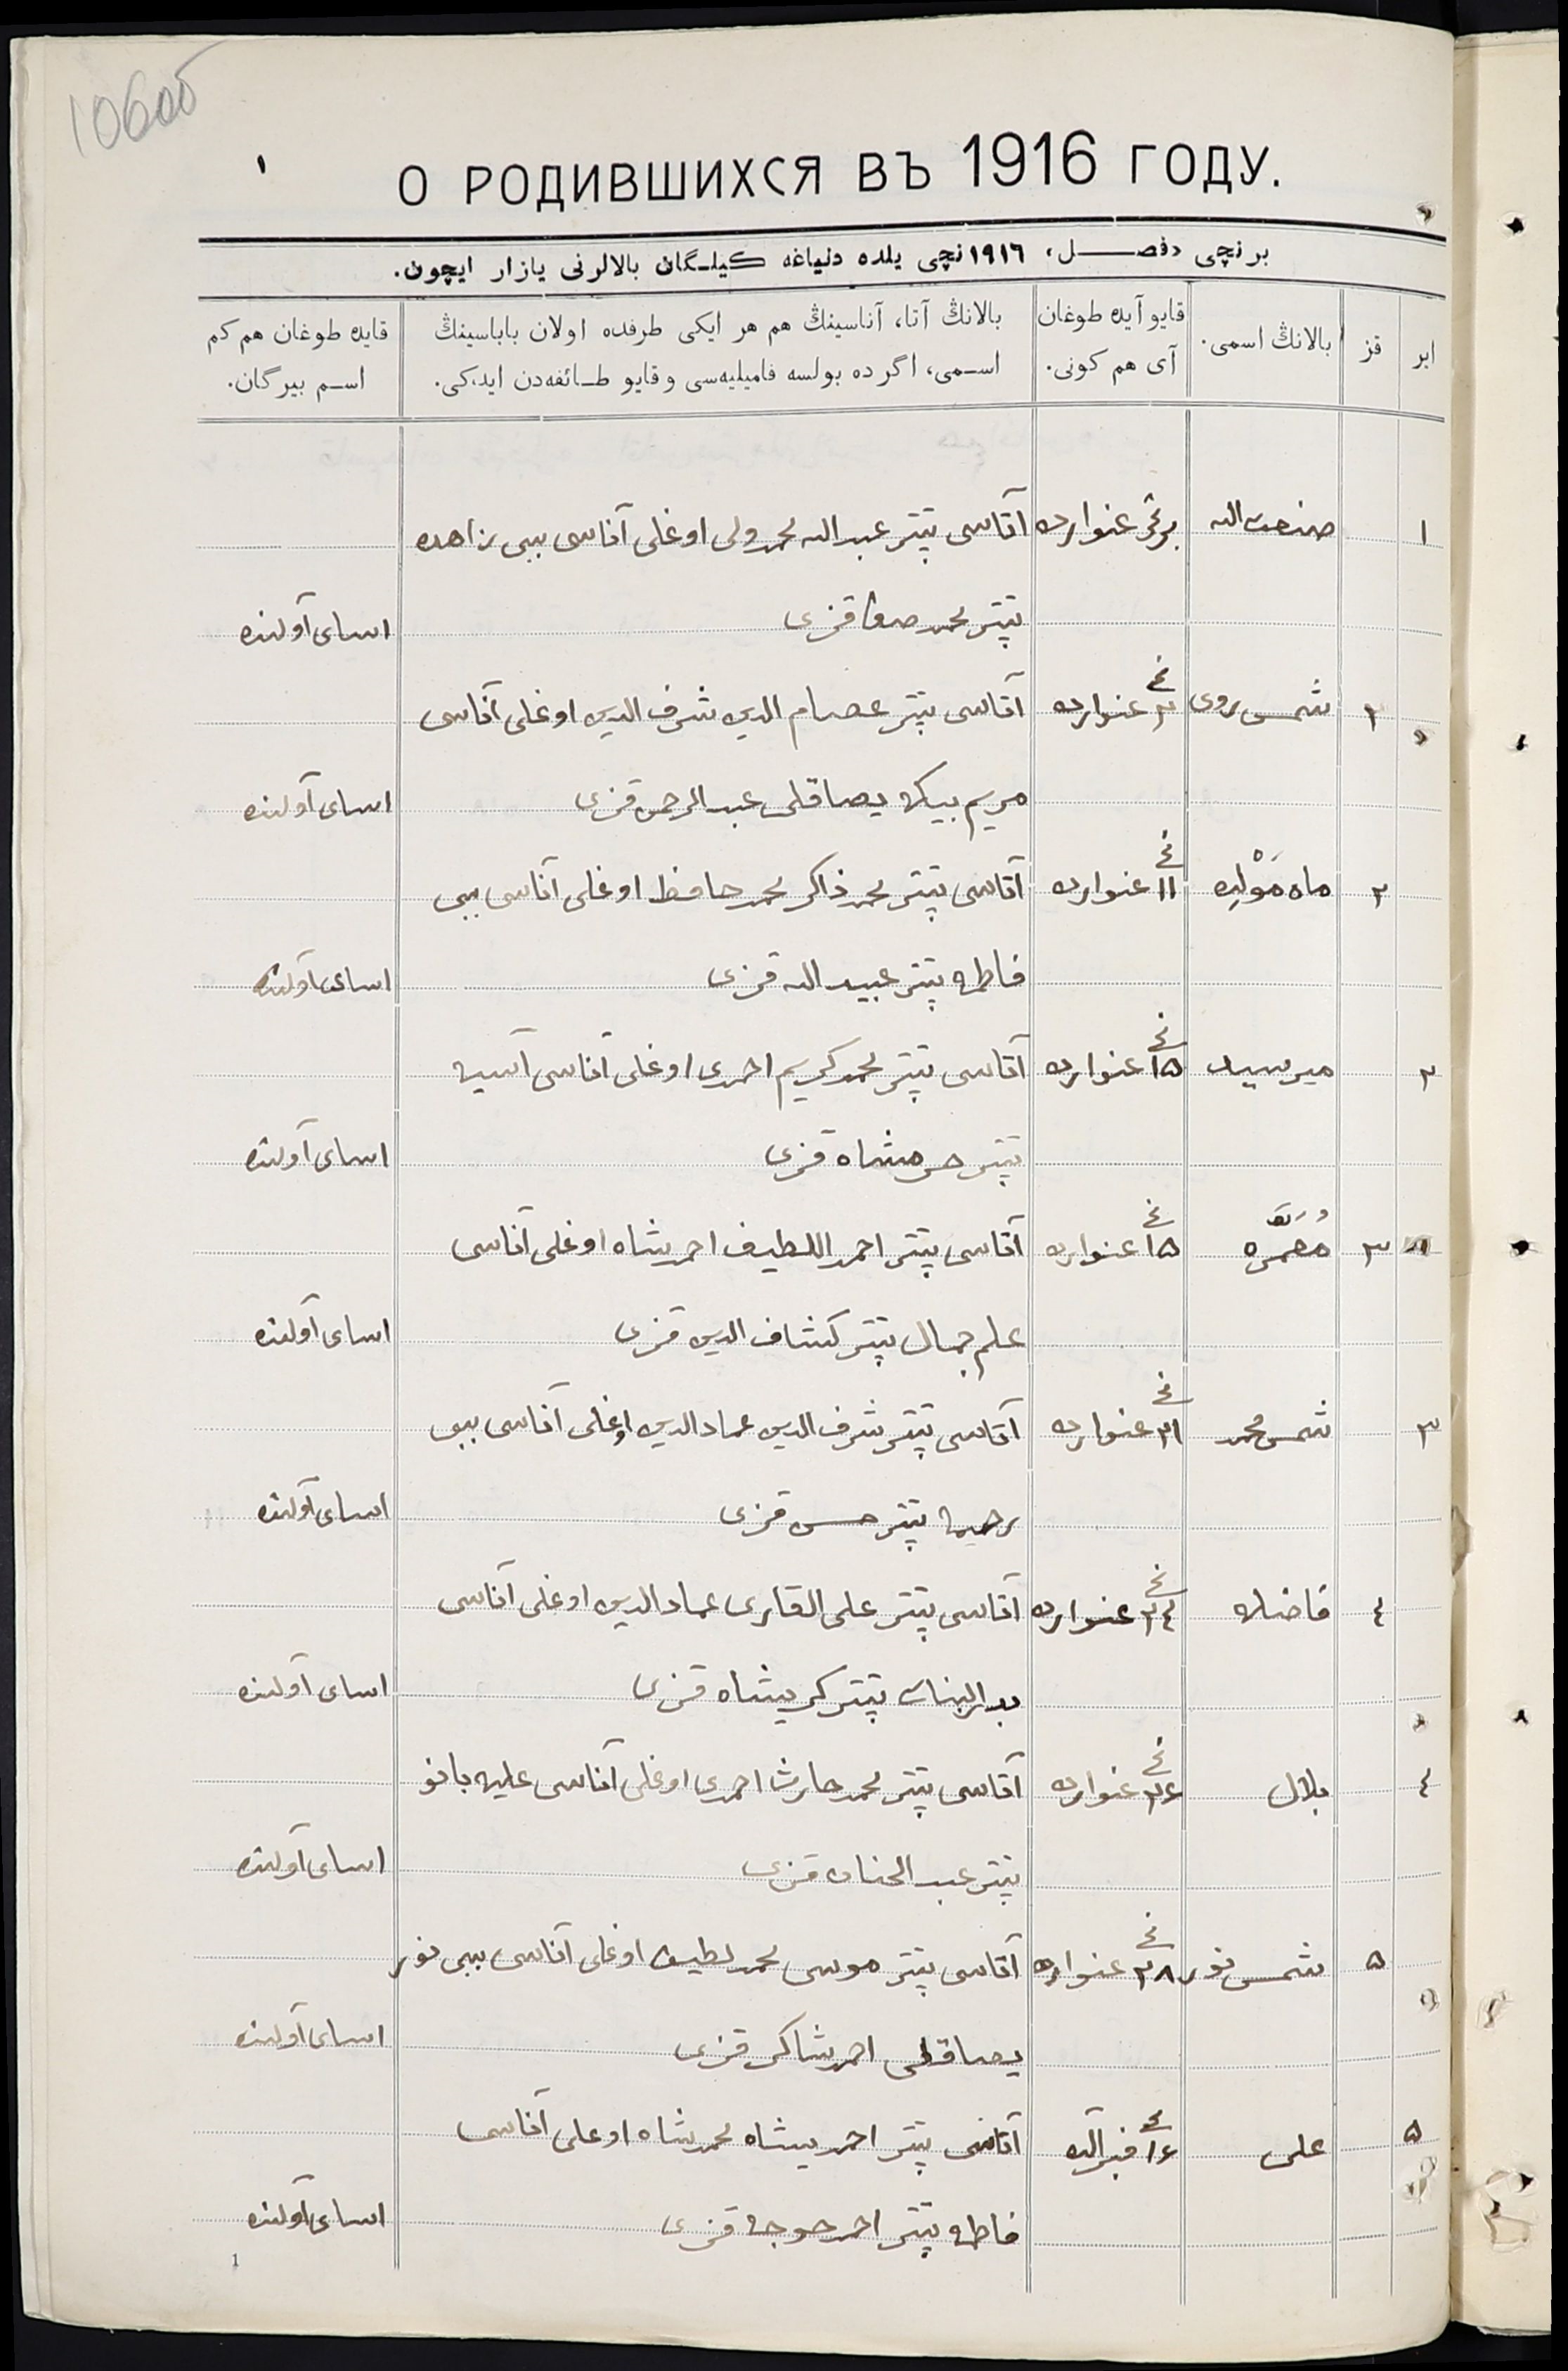 10600
١
О РОДИВШИХСЯ ВЪ 1916 ГОДУ.
برنچی «فصــل»، ١٩١٦ نچی یلده دنیاغه كیلـگان بالالرنی یازار ایچون.
ایر
قز
بالانڭ اسمی.
قایو آیده طوغان
آی هم كونی.
بالانڭ آتا، آناسینڭ هم هر ایكی طرفده اولان باباسینڭ
اسـمی، اگر ده بولسه فامیلیه‌سی و قایو طـائفه‌دن ایدكی.
قایده طوغان هم كم
اسـم بیرگان.
١ صنعت الله برنچی غنوارده آتاسی تپتر عبدالله محمدولی اوغلی آناسی بیبی زاهده
تپتر محمدصفا قزی اسای آولنده
١ شمس روی ٣ نچی غنوارده آتاسی تپتر عصام الدین شرف الدین اوغلی آناسی
مریم بیكه یصاقلی عبدالرحمن قزی اسای آولنده
٢ ماه مَوْلِده ١١ نچی غنوارده آتاسی تپتر محمد ذاكر محمد حافظ اوغلی آناسی بیبی
فاطمه تپتر عبیدالله قزی اسای آولنده
٢ میرسید ١٥ نچی غنوارده آتاسی تپتر محمدكریم احمدی اوغلی آناسی آسیه
تپتر اسای آولنده
٣ معمره ١٥ نچی غنوارده آتاسی تپتر احمد اللطیف احمدشاه اوغلی آناسی
علم جمال تپتر كشاف الدین قزی اسای آولنده
٣ شمس محمد ٢١ نچی غنوارده آتاسی تپتر شرف الدین عماد الدین اوغلی آناسی بیبی
رحیمه تپتر حسن قزی اسای آولنده
٤ فاضله ٢٤ نچی غنوارده آتاسی تپتر علی القاری عماد الدین اوغلی آناسی
بدر البنات تپتر كریمشاه قزی اسای آولنده
٤ بلال ٢٦ نچی غنوارده آتاسی تپتر محمد حارث احمدی اوغلی آناسی علیه بانو
تپتر عبد الحنان قزی اسای آولنده
٥ شمس نور ٢٨ نچی غنوارده آتاسی تپتر موسی محمد لطیف اوغلی آناسی بیبی نور
یصاقلی احمدشاكر قزی اسای آولنده
٥ علی ١٦ نچی فبرالده آتاسی تپتر احمدیشاه محمدشاه اوغلی آناسی
فاطمه تپتر احمد خوجه قزی اسای آولنده
1